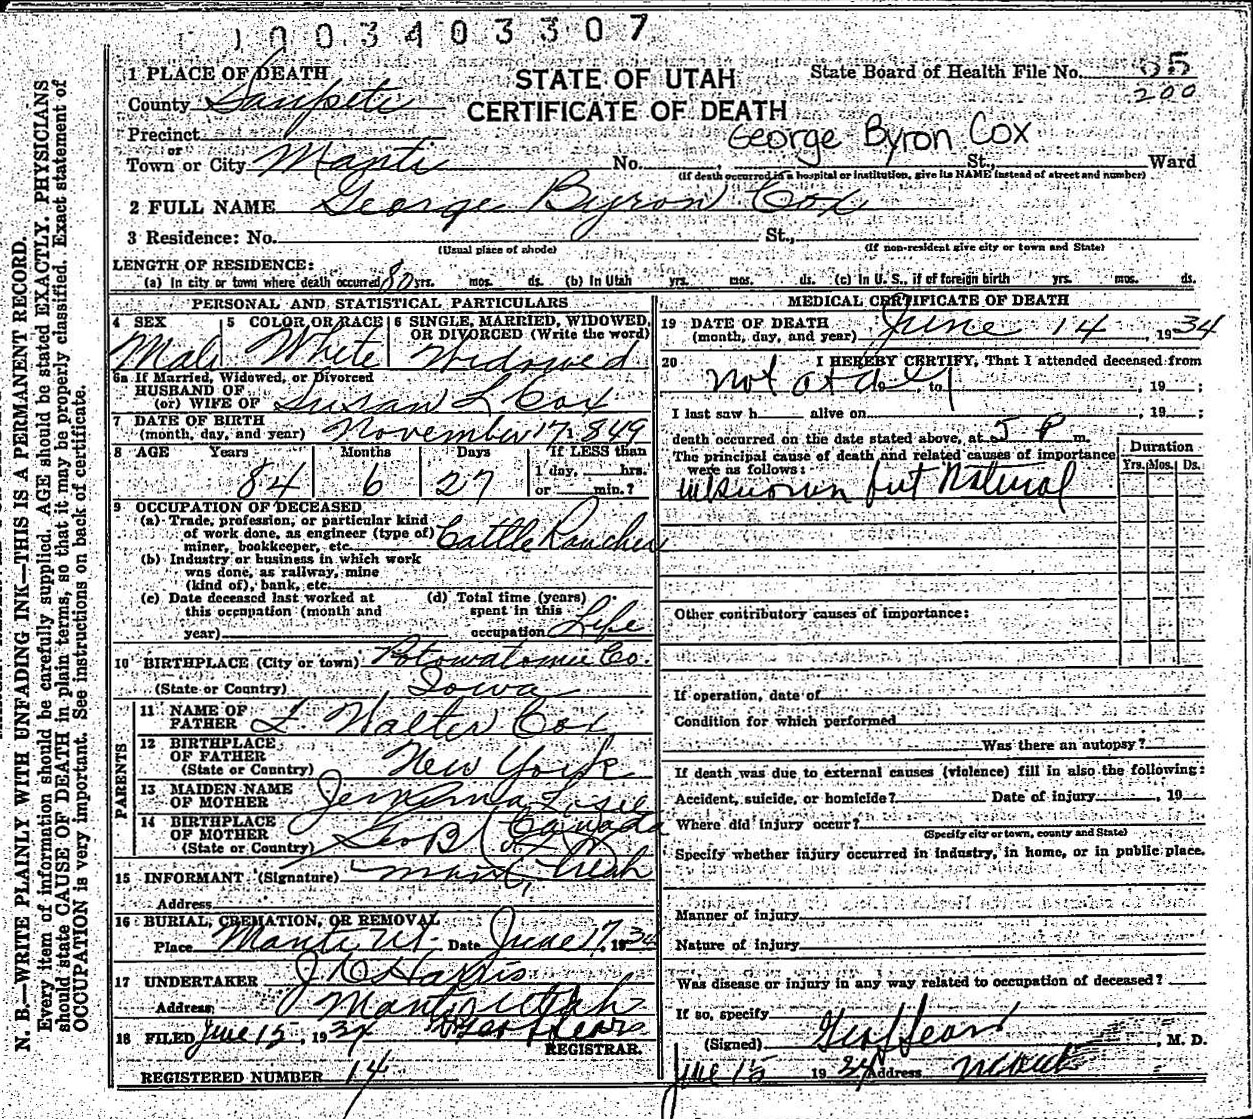 1 0 0 3 4 0 3 3 0 7
STATE OF UTAH
CERTIFICATE OF DEATH
State Board of Health File No. 65
200
1 PLACE OF DEATH
County Sanpete
Precinct
or
Town or City Manti No. St., Ward
George Byron Cox
(If death occurred in a hospital or institution, give its NAME instead of street and number)
2 FULL NAME George Byron Cox
3 Residence: No. St.,
(Usual place of abode) (If non-resident give city or town and State)
LENGTH OF RESIDENCE:
(a) In city or town where death occurred 80 yrs. mos. ds. (b) In Utah yrs. mos. ds. (c) In U. S., if of foreign birth yrs. mos. ds.
PERSONAL AND STATISTICAL PARTICULARS
4 SEX Male
5 COLOR OR RACE White
6 SINGLE, MARRIED, WIDOWED, OR DIVORCED (Write the word) Widowed
6a If Married, Widowed, or Divorced
HUSBAND OF
(or) WIFE OF Susan L Cox
7 DATE OF BIRTH
(month, day, and year) November 17, 1849
8 AGE Years Months Days If LESS than
84 6 27 1 day, hrs.
or min.?
9 OCCUPATION OF DECEASED
(a) Trade, profession, or particular kind
of work done, as engineer (type of)
miner, bookkeeper, etc. Cattle Rancher
(b) Industry or business in which work
was done, as railway, mine
(kind of), bank, etc.
(c) Date deceased last worked at
this occupation (month and
year)
(d) Total time (years)
spent in this
occupation Life
10 BIRTHPLACE (City or town) Potowatomie Co.
(State or Country) Iowa
PARENTS
11 NAME OF
FATHER F Walter Cox
12 BIRTHPLACE
OF FATHER
(State or Country) New York
13 MAIDEN NAME
OF MOTHER Jemima
14 BIRTHPLACE
OF MOTHER
(State or Country) Canada
15 INFORMANT (Signature) Geo B Cox
Manti, Utah
Address
16 BURIAL, CREMATION, OR REMOVAL
Place Manti Ut. Date June 17, 1934
17 UNDERTAKER Harris
Address Manti Utah
18 FILED June 15, 1934 Sears
REGISTRAR.
REGISTERED NUMBER 14
MEDICAL CERTIFICATE OF DEATH
19 DATE OF DEATH
(month, day, and year) June 14, 1934
20 I HEREBY CERTIFY, That I attended deceased from
Not to , 19 ;
I last saw h alive on , 19 ;
death occurred on the date stated above, at 5 P m.
The principal cause of death and related causes of importance
were as follows:
Duration
Yrs. Mos. Ds.
unknown but Natural
Other contributory causes of importance:
If operation, date of
Condition for which performed
Was there an autopsy?
If death was due to external causes (violence) fill in also the following:
Accident, suicide, or homicide? Date of injury , 19
Where did injury occur?
(Specify city or town, county and State)
Specify whether injury occurred in industry, in home, or in public place.
Manner of injury
Nature of injury
Was disease or injury in any way related to occupation of deceased?
If so, specify
(Signed) Geo Sears , M. D.
June 15 1934 Address
N. B.—WRITE PLAINLY WITH UNFADING INK—THIS IS A PERMANENT RECORD.
Every item of information should be carefully supplied. AGE should be stated EXACTLY. PHYSICIANS
should state CAUSE OF DEATH in plain terms, so that it may be properly classified. Exact statement of
OCCUPATION is very important. See instructions on back of certificate.